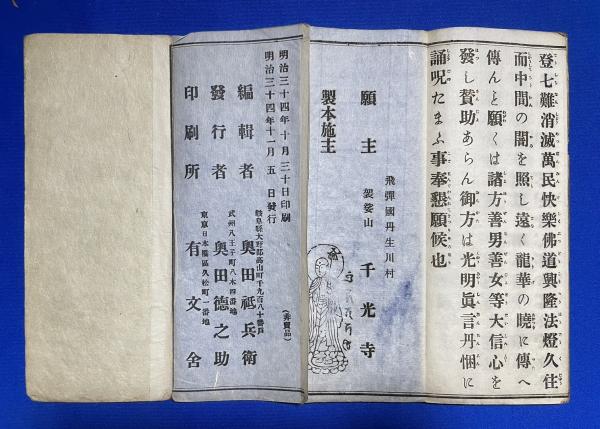 登七難消滅萬民快樂佛道興隆法燈久住
而中間の闇を照し遠く龍華の曉に傳へ
傳んと願くは諸方善男善女等大信心を
發し賛助あらん御方は光明眞言丹悃に
誦呪たまふ事奉懇願候也
飛彈國丹生川村
願主 袈裟山 千光寺
製本施主
明治三十四年十月三十日印刷
明治三十四年十一月五日發行
(非賣品)
岐阜縣大野郡高山町千九百八十番戸
編輯者 奥田祗兵衛
武州八王子町八木四番地
發行者 奥田德之助
東京日本橋區久松町一番地
印刷所 有文舍